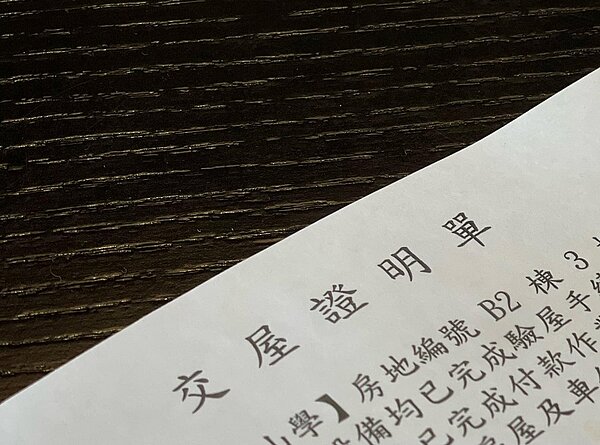 交屋證明單
學】房地編號 B2 棟 3
設備均已完成驗屋手續
已完成付款作業
屋及車位